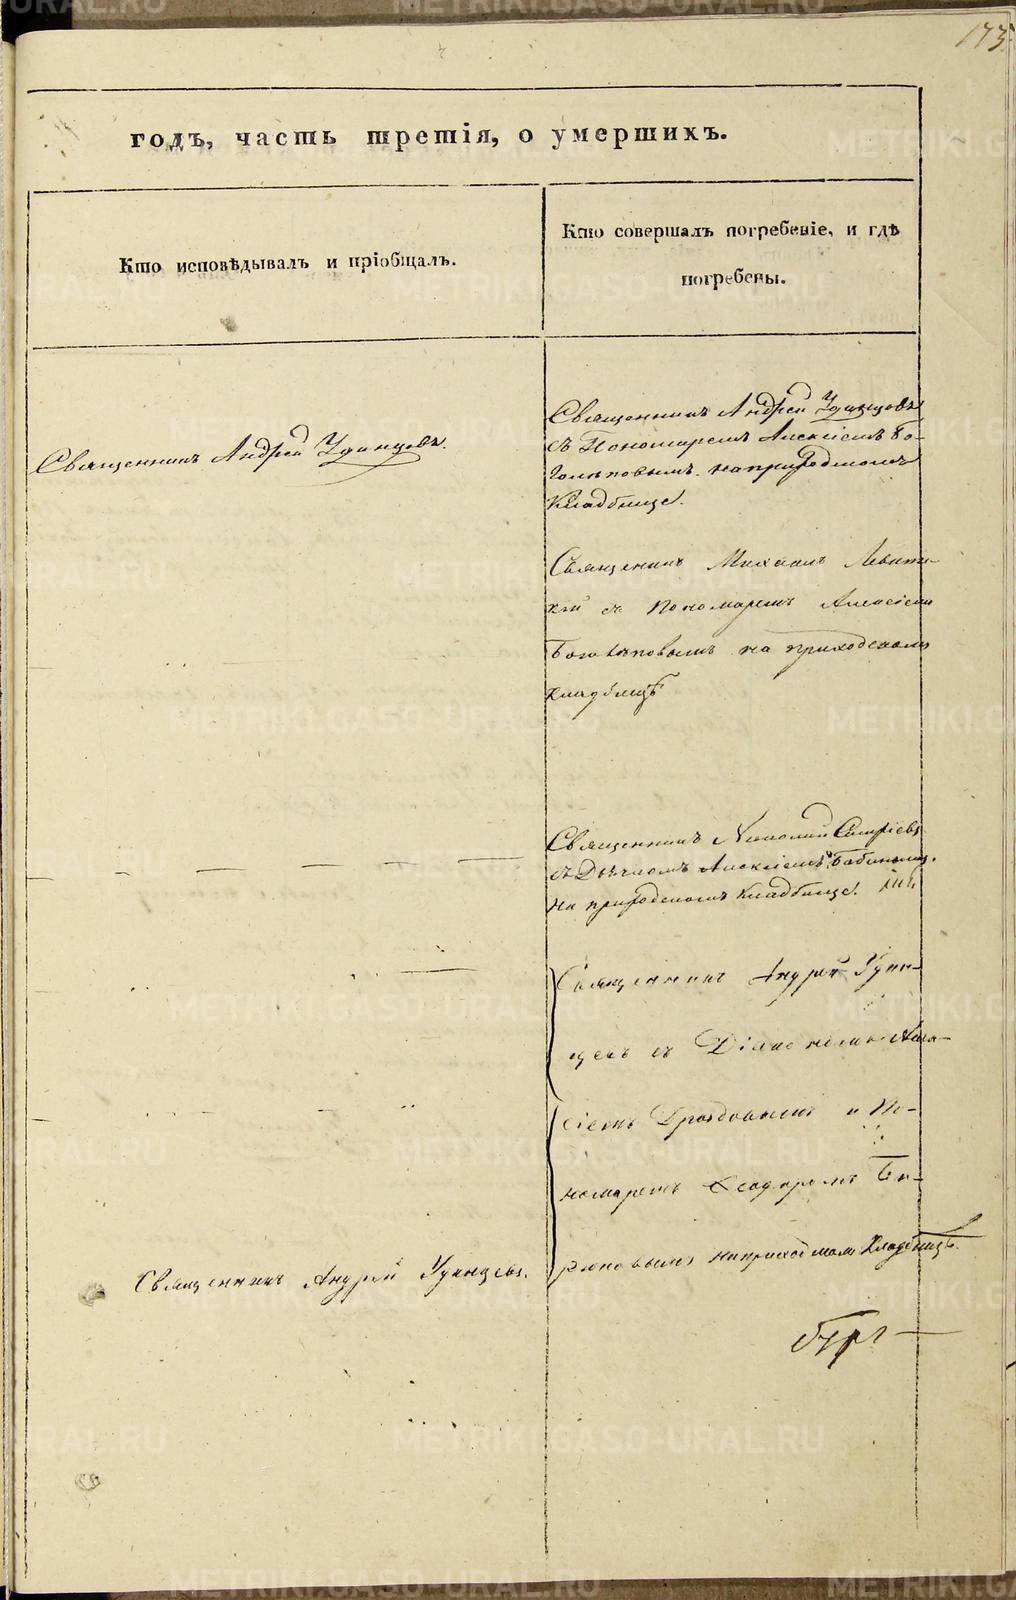 173.
годъ, часть третія, о умершихъ.
Кто исповѣдывалъ и пріобщалъ.
Кто совершалъ погребеніе, и гдѣ
погребены.
Священникъ Андрей Удинцовъ.
Священникъ Андрей Удинцовъ
съ Пономаремъ Алексіемъ Бо-
голѣповымъ на приходскомъ
Кладбище.
Священникъ Михаилъ Левит-
кій съ Пономаремъ Алексіемъ
Боголѣповымъ на приходскомъ
кладбищѣ
Священникъ
съ Дьячкомъ Алексіемъ Бабинымъ
на приходскомъ кладбище.
Священникъ Андрей Удин-
цевъ съ Діакономъ Алек-
сіемъ Дроздовымъ и По-
номаремъ Ѳеодоромъ Би-
рюковымъ на приходскомъ Кладбищѣ.
Священникъ Андрей Удинцевъ.
METRIKI.GASO-URAL.RU